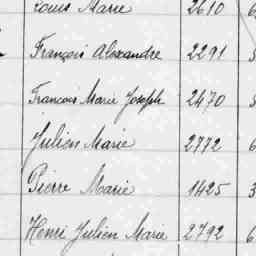 Louis Marie 2610 6
François Alexandre 2291 5
Francois Marie Joseph 2470 5
Julien Marie 2772 6
Pierre Marie 1425 3
Henri Julien Marie 2792 6